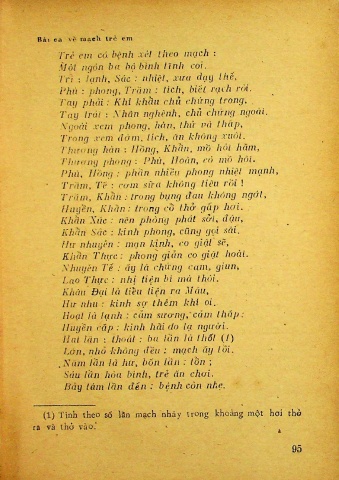 Bài ca về mạch trẻ em
Trẻ em có bệnh xét theo mạch :
Một ngón ba bộ bình tĩnh coi.
Trì : lạnh, Sác : nhiệt, xưa dạy thế,
Phù : phong, Trầm : tích, biết rạch rồi.
Tay phải : Khí khẩu chủ chứng trong,
Tay trái : Nhân nghênh, chủ chứng ngoài.
Ngoài xem phong, hàn, thử và thấp,
Trong xem đờm, tích, ăn không xuôi.
Thương hàn : Hồng, Khẩn, mồ hôi hãm,
Thương phong : Phù, Hoãn, có mồ hôi.
Phù, Hồng : phần nhiều phong nhiệt mạnh,
Trầm, Tế : cơm sữa không tiêu rồi !
Trầm, Khẩn : trong bụng đau không ngớt,
Huyền, Khẩn : trong cổ thở gấp hơi.
Khẩn Xúc : nên phòng phát sởi, đậu,
Khẩn Sác : kinh phong, cũng gọi sài.
Hư nhuyễn : mạn kinh, co giật sẽ,
Khẩn Thực : phong giản co giật hoài.
Nhuyễn Tế : ấy là chứng cam, giun,
Lao Thực : nhị tiện bí mà thôi.
Khâu Đại là tiểu tiện ra Máu,
Hư nhu : kinh sợ thêm khí ôi.
Hoạt là lạnh : cảm sương, cảm thấp :
Huyền cấp : kinh hãi do lạ người.
Hai lần : thoát : ba lần là thốt (1)
Lớn, nhỏ không đều : mạch ấy tồi.
Năm lần là hư, bốn lần : tổn :
Sáu lần hòa bình, trẻ ăn chơi.
Bảy tám lần đến : bệnh còn nhẹ.
(1) Tính theo số lần mạch nhảy trong khoảng một hơi thở
ra và thở vào.
95